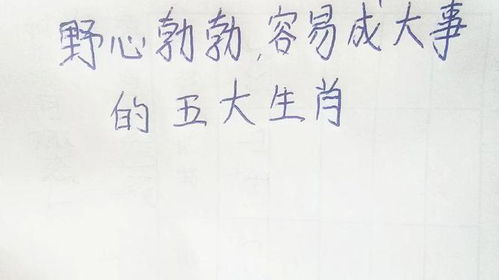 野心勃勃,容易成大事
的五大生肖